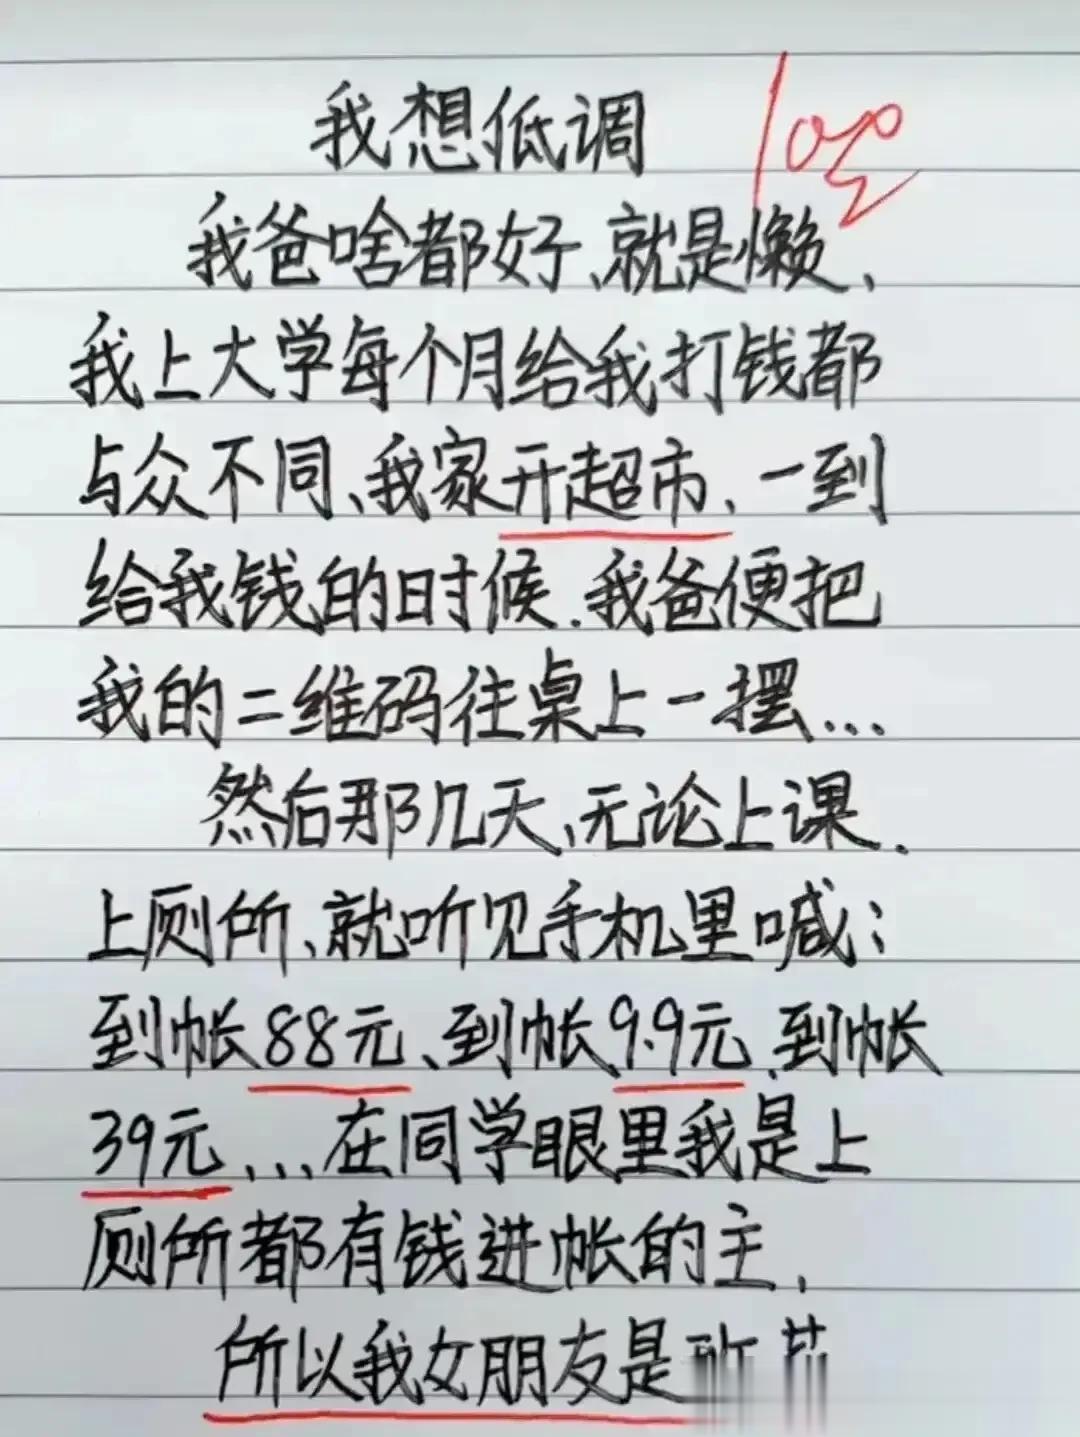 我想低调
100
我爸啥都好、就是懒、
我上大学每个月给我打钱都
与众不同、我家开超市、一到
给我钱的时候.我爸便把
我的二维码往桌上一摆...
然后那几天、无论上课.
上厕所、就听见手机里喊:
到帐88元、到帐9.9元、到帐
39元...在同学眼里我是上
厕所都有钱进帐的主.
所以我女朋友是